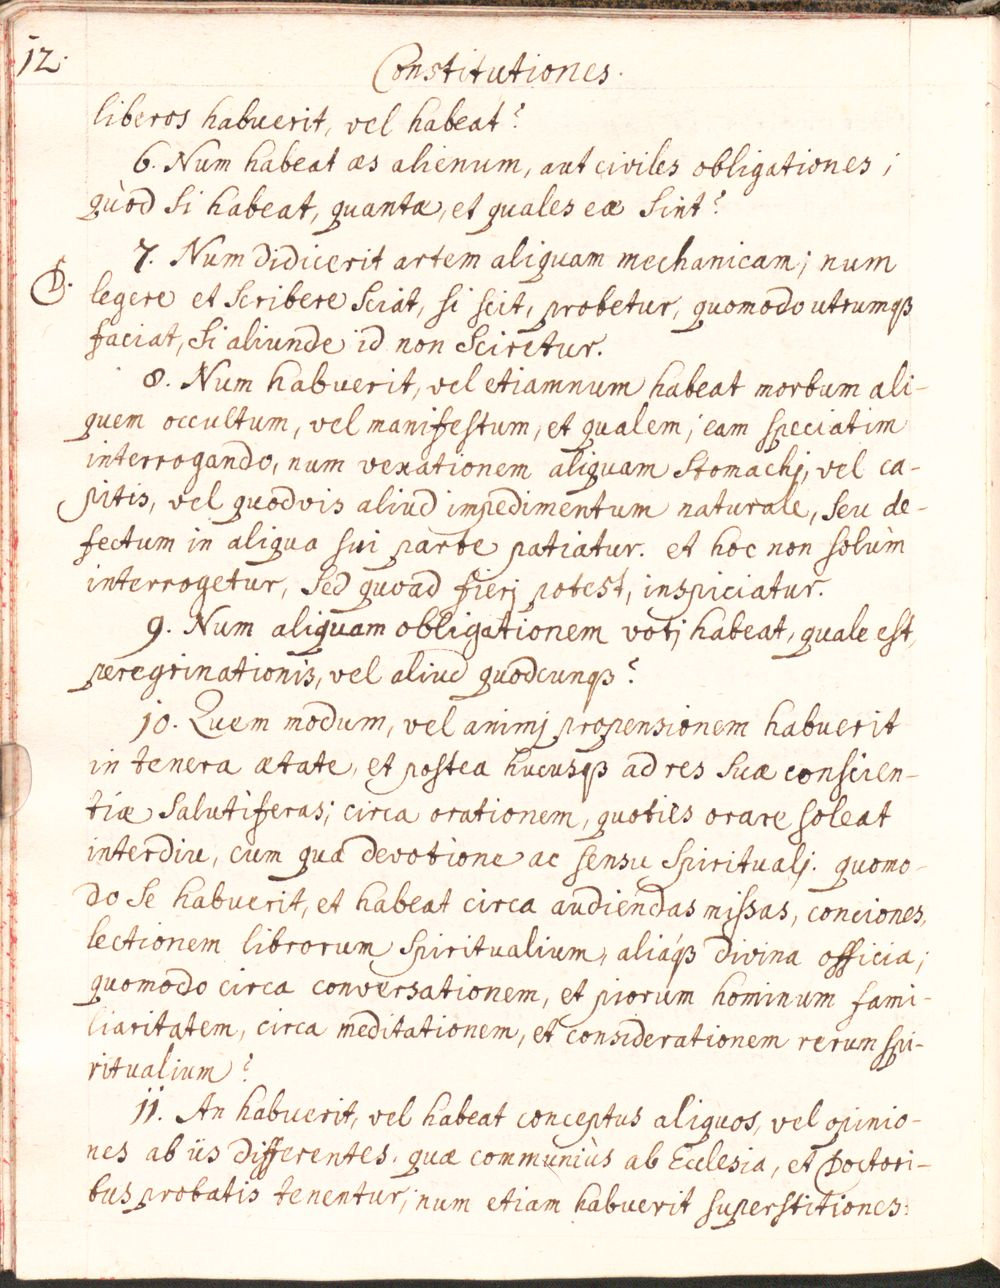 12.
Constitutiones.
liberos habuerit, vel habeat?
6. Num habeat æs alienum, aut civiles obligationes;
quòd si habeat, quantæ, et quales eæ sint?
7. Num didicerit artem aliquam mechanicam; num
D.
legere et scribere sciat, si scit, probetur, quomodo utrumqꝫ
faciat, si aliunde id non sciretur.
8. Num habuerit, vel etiamnum habeat morbum ali-
quem occultum, vel manifestum, et qualem; eam speciatim
interrogando, num vexationem aliquam stomachj, vel ca-
pitis, vel quodvis aliud impedimentum naturale, seu de-
fectum in aliqua sui parte patiatur. et hoc non solùm
interrogetur, sed quoad fierj potest, inspiciatur.
9. Num aliquam obligationem votj habeat, quale est,
peregrinationis, vel aliud quodcunqꝫ?
10. Quem modum, vel animj propensionem habuerit
in tenera ætate, et postea hucusqꝫ ad res suæ conscien-
tiæ salutiferas; circa orationem, quoties orare soleat
interdiu, cum qua devotione ac sensu spiritualj. quomo-
do se habuerit, et habeat circa audiendas missas, conciones,
lectionem librorum spiritualium, aliáqꝫ divina officia;
quomodo circa conversationem, et piorum hominum fami-
liaritatem, circa meditationem, et considerationem rerum spi-
ritualium?
11. An habuerit, vel habeat conceptus aliquos, vel opinio-
nes ab iis differentes, quæ communiùs ab Ecclesia, et Doctori-
bus probatis tenentur; num etiam habuerit superstitiones: